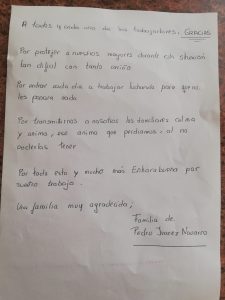 A todos y cada uno de los trabajadores, GRACIAS
Por proteger a nuestros mayores durante esta situación
tan difícil con tanto cariño
Por entrar cada día a trabajar luchando para que no
les pasara nada
Por transmitirnos a nosotros los familiares calma
y animo, ese animo que perdíamos al no
poderlos tener
Por todo esto y mucho más Enhorabuena por
vuestro trabajo.
Una familia muy agradecida;
Familia de
Pedro Juarez Navarro